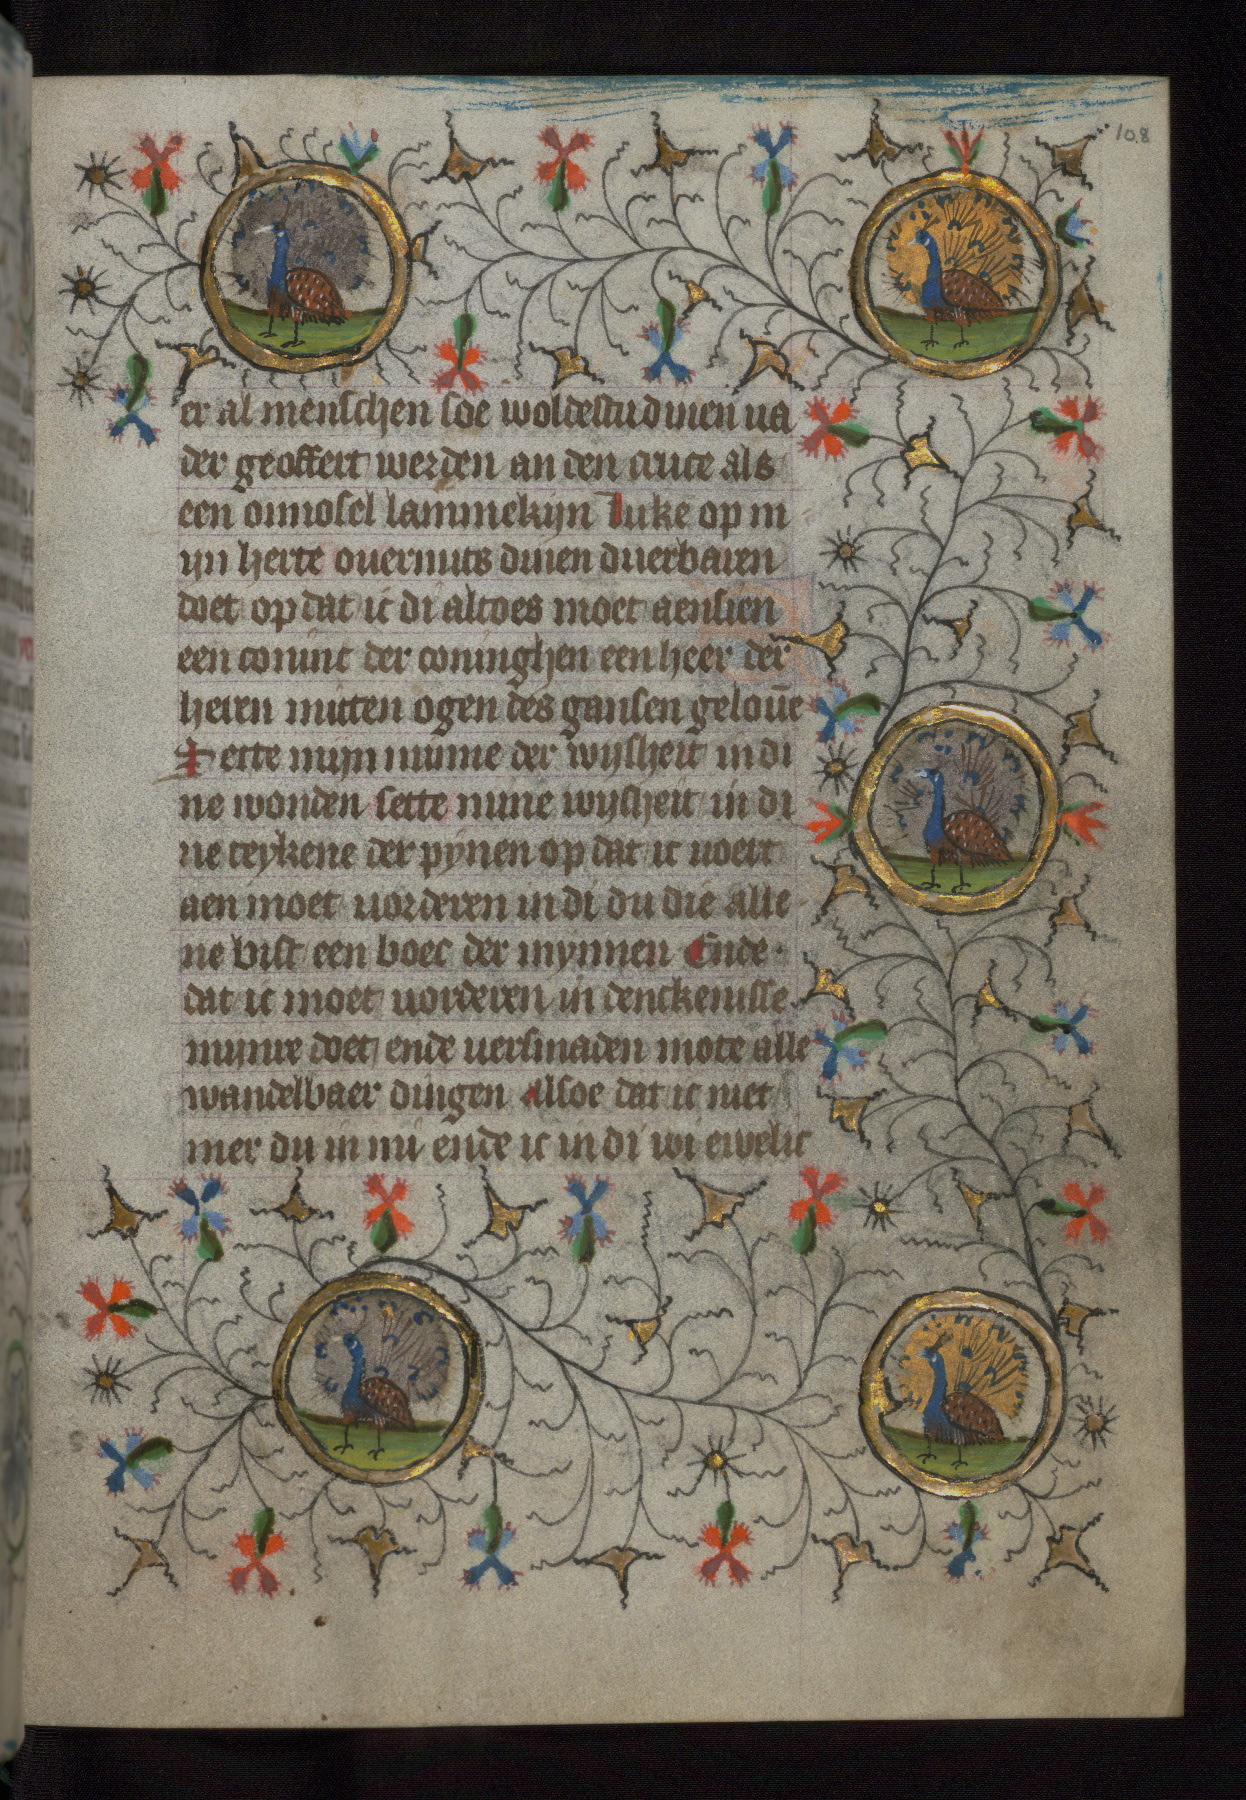 108
er al menschen soe woldestu dinen va
der geoffert werden an den cruce als
een onnosel lammekijn Luke op m
ijn herte overmits dinen duerbaren
doet op dat ic di altoes moet aensien
een coninc der coninghen een heer der
heren mitten ogen des gansen geloue
Sette mijn minne der wijsheit in di
ne wonden sette mine wijsheit in di
ne teykene der pijnen op dat ic voert
aen moet vorderen in di du die alle
ne bist een boec der mynnen Ende
dat ic moet vorderen in denckenisse
mijnre doet ende versmaden mote alle
wandelbaer dingen Alsoe dat ic niet
mer du in mi ende ic in di wi ewelic